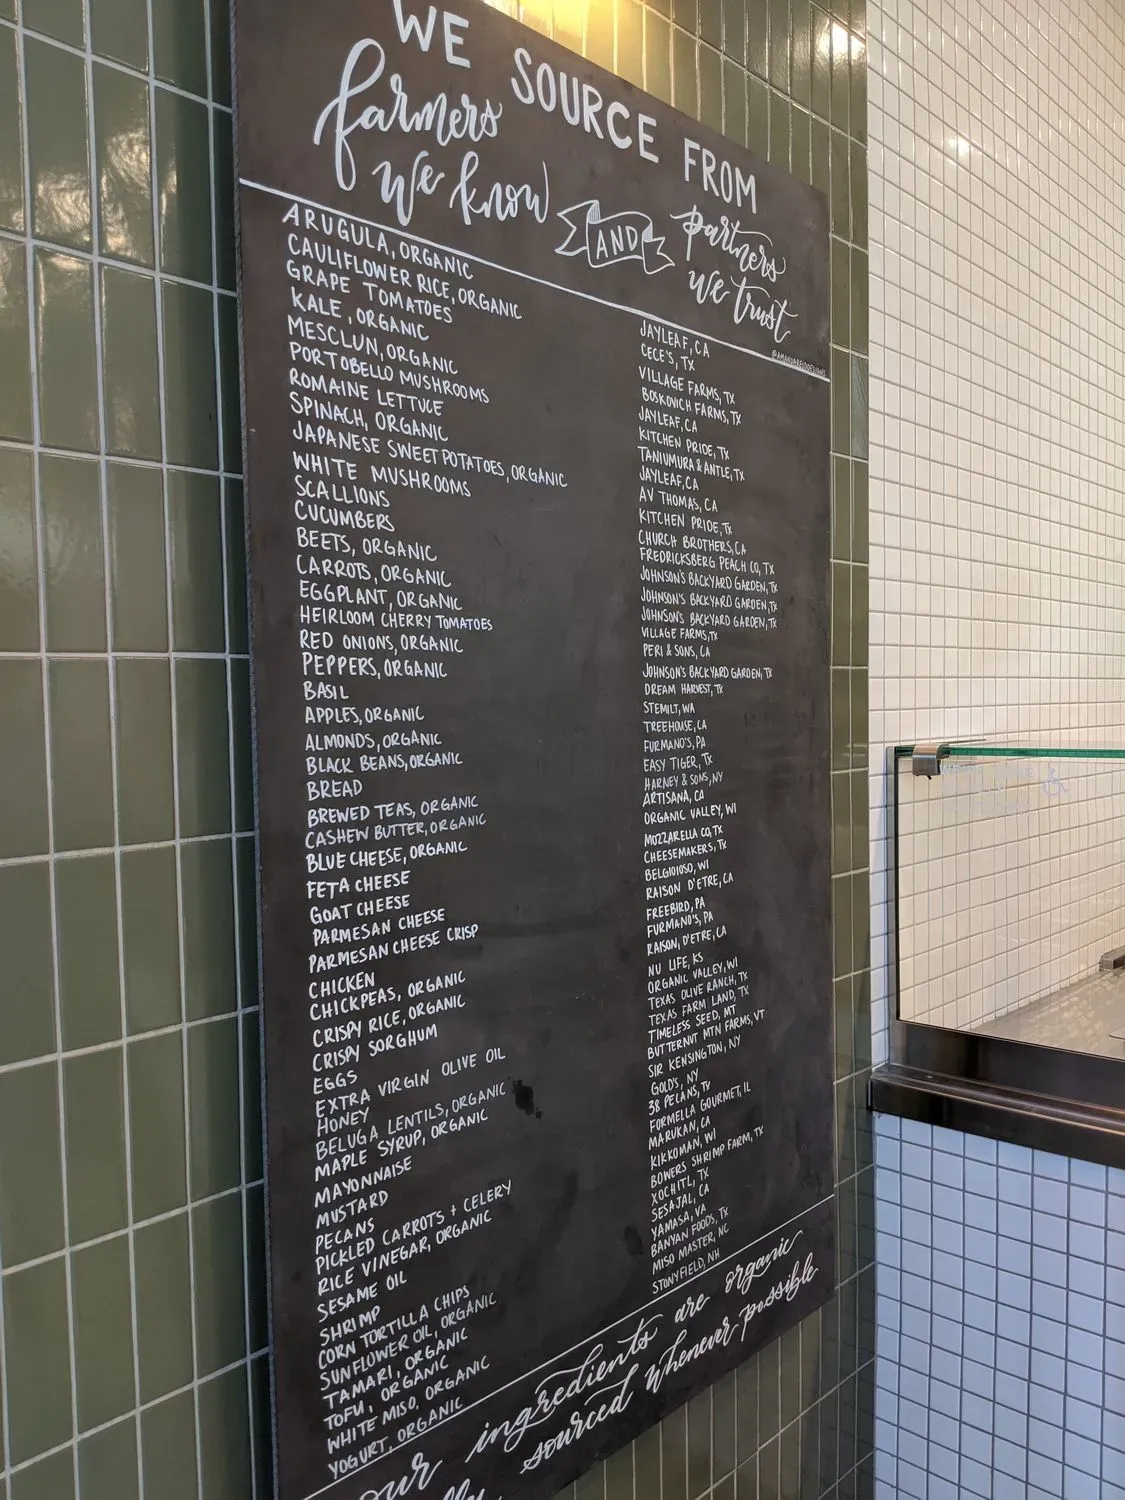 WE SOURCE FROM
farmers we know AND partners we trust
@AMANDAREIDDESIGNS
ARUGULA, ORGANIC JAYLEAF, CA
CAULIFLOWER RICE, ORGANIC CECE'S, TX
GRAPE TOMATOES VILLAGE FARMS, TX
KALE, ORGANIC BOSKOVICH FARMS, TX
MESCLUN, ORGANIC JAYLEAF, CA
PORTOBELLO MUSHROOMS KITCHEN PRIDE, TX
ROMAINE LETTUCE TANIUMURA & ANTLE, TX
SPINACH, ORGANIC JAYLEAF, CA
JAPANESE SWEET POTATOES, ORGANIC AV THOMAS, CA
WHITE MUSHROOMS KITCHEN PRIDE, TX
SCALLIONS CHURCH BROTHERS, CA
CUCUMBERS FREDRICKSBERG PEACH CO, TX
BEETS, ORGANIC JOHNSON'S BACKYARD GARDEN, TX
CARROTS, ORGANIC JOHNSON'S BACKYARD GARDEN, TX
EGGPLANT, ORGANIC JOHNSON'S BACKYARD GARDEN, TX
HEIRLOOM CHERRY TOMATOES VILLAGE FARMS, TX
RED ONIONS, ORGANIC PERI & SONS, CA
PEPPERS, ORGANIC JOHNSON'S BACKYARD GARDEN, TX
BASIL DREAM HARVEST, TX
APPLES, ORGANIC STEMILT, WA
ALMONDS, ORGANIC TREEHOUSE, CA
BLACK BEANS, ORGANIC FURMANO'S, PA
BREAD EASY TIGER, TX
BREWED TEAS, ORGANIC HARNEY & SONS, NY
CASHEW BUTTER, ORGANIC ARTISANA, CA
BLUE CHEESE, ORGANIC ORGANIC VALLEY, WI
FETA CHEESE MOZZARELLA CO, TX
GOAT CHEESE CHEESEMAKERS, TX
PARMESAN CHEESE BELGIOIOSO, WI
PARMESAN CHEESE CRISP RAISON D'ETRE, CA
CHICKEN FREEBIRD, PA
CHICKPEAS, ORGANIC FURMANO'S, PA
CRISPY RICE, ORGANIC RAISON, D'ETRE, CA
CRISPY SORGHUM NU LIFE, KS
EGGS ORGANIC VALLEY, WI
EXTRA VIRGIN OLIVE OIL TEXAS OLIVE RANCH, TX
HONEY TEXAS FARM LAND, TX
BELUGA LENTILS, ORGANIC TIMELESS SEED, MT
MAPLE SYRUP, ORGANIC BUTTERNUT MTN FARMS, VT
MAYONNAISE SIR KENSINGTON, NY
MUSTARD GOLD'S, NY
PECANS 38 PECANS, TX
PICKLED CARROTS + CELERY FORMELLA GOURMET, IL
RICE VINEGAR, ORGANIC MARUKAN, CA
SESAME OIL KIKKOMAN, WI
SHRIMP BOWERS SHRIMP FARM, TX
CORN TORTILLA CHIPS XOCHITL, TX
SUNFLOWER OIL, ORGANIC SESAJAL, CA
TAMARI, ORGANIC YAMASA, VA
TOFU, ORGANIC BANYAN FOODS, TX
WHITE MISO, ORGANIC MISO MASTER, NC
YOGURT, ORGANIC STONYFIELD, NH
our ingredients are organic
sourced whenever possible